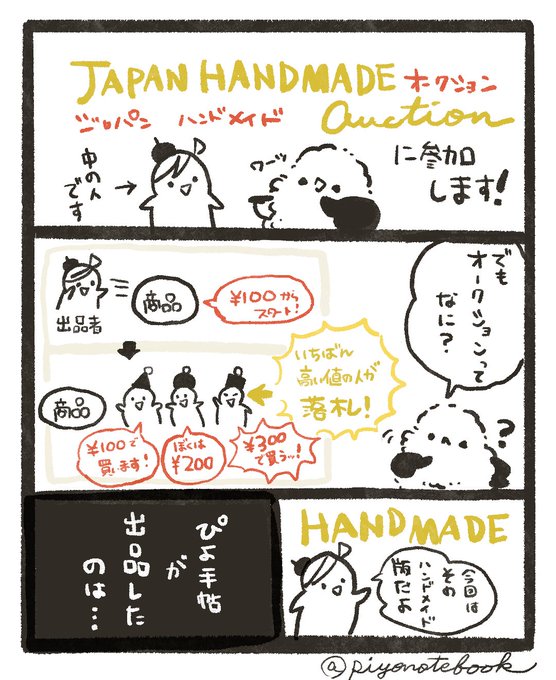 JAPAN HANDMADE オークション
ジャパン ハンドメイド Auction
に参加
します!
ワーッ
中の人
です
→
でも
オークションって
なに?
出品者
商品
¥100から
スタート!
いちばん
高い値の人が
落札!
商品
¥100で
買います!
ぼくは
¥200
¥300
で買うッ!
?
HANDMADE
今回は
その
ハンドメイド
版だよ
ぴよ手帖
が
出品した
のは…
@piyonotebook